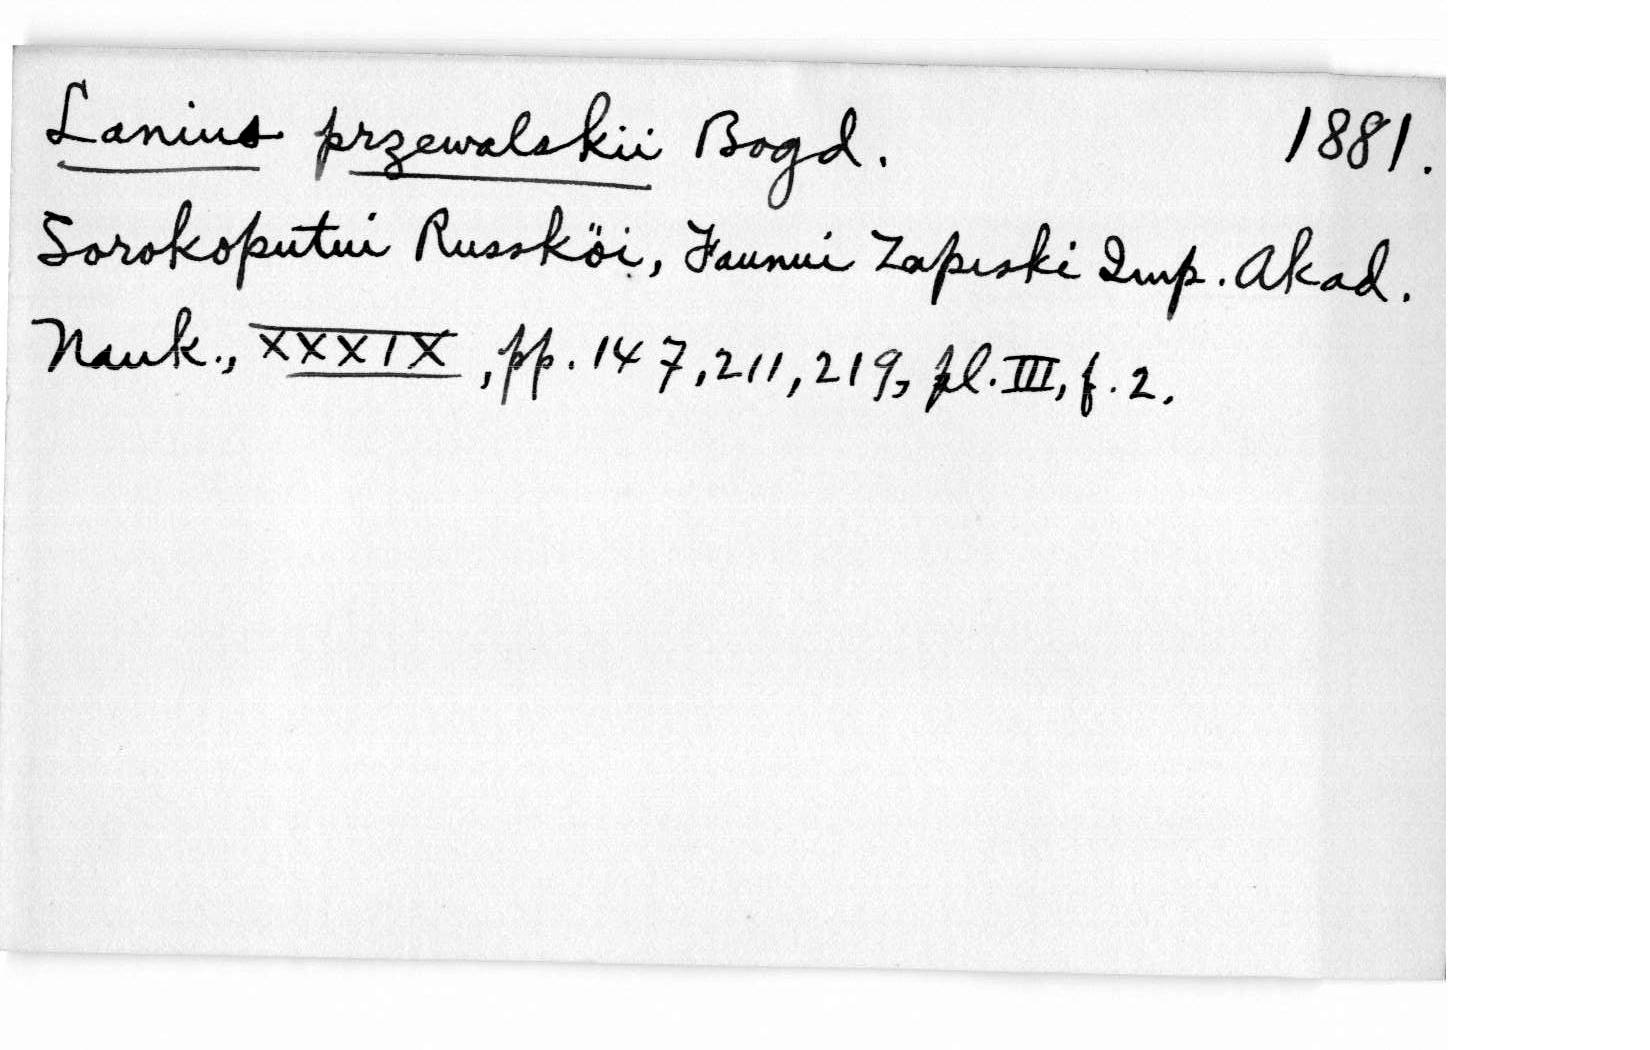 Lanius przewalskii Bogd. 1881.
Sorokoputui Russköi, Faunui Zapiski Imp. Akad.
Nauk., XXXIX, pp. 147, 211, 219, pl. III, f. 2.